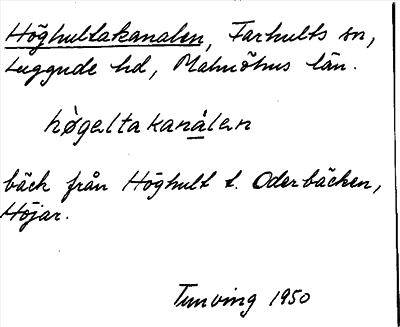 Höghultakanalen, Farhults sn,
Luggude hd, Malmöhus län.
hògaltakanålen
bäck från Höghult t. Oderbäcken,
Höjar.
Tunving 1950